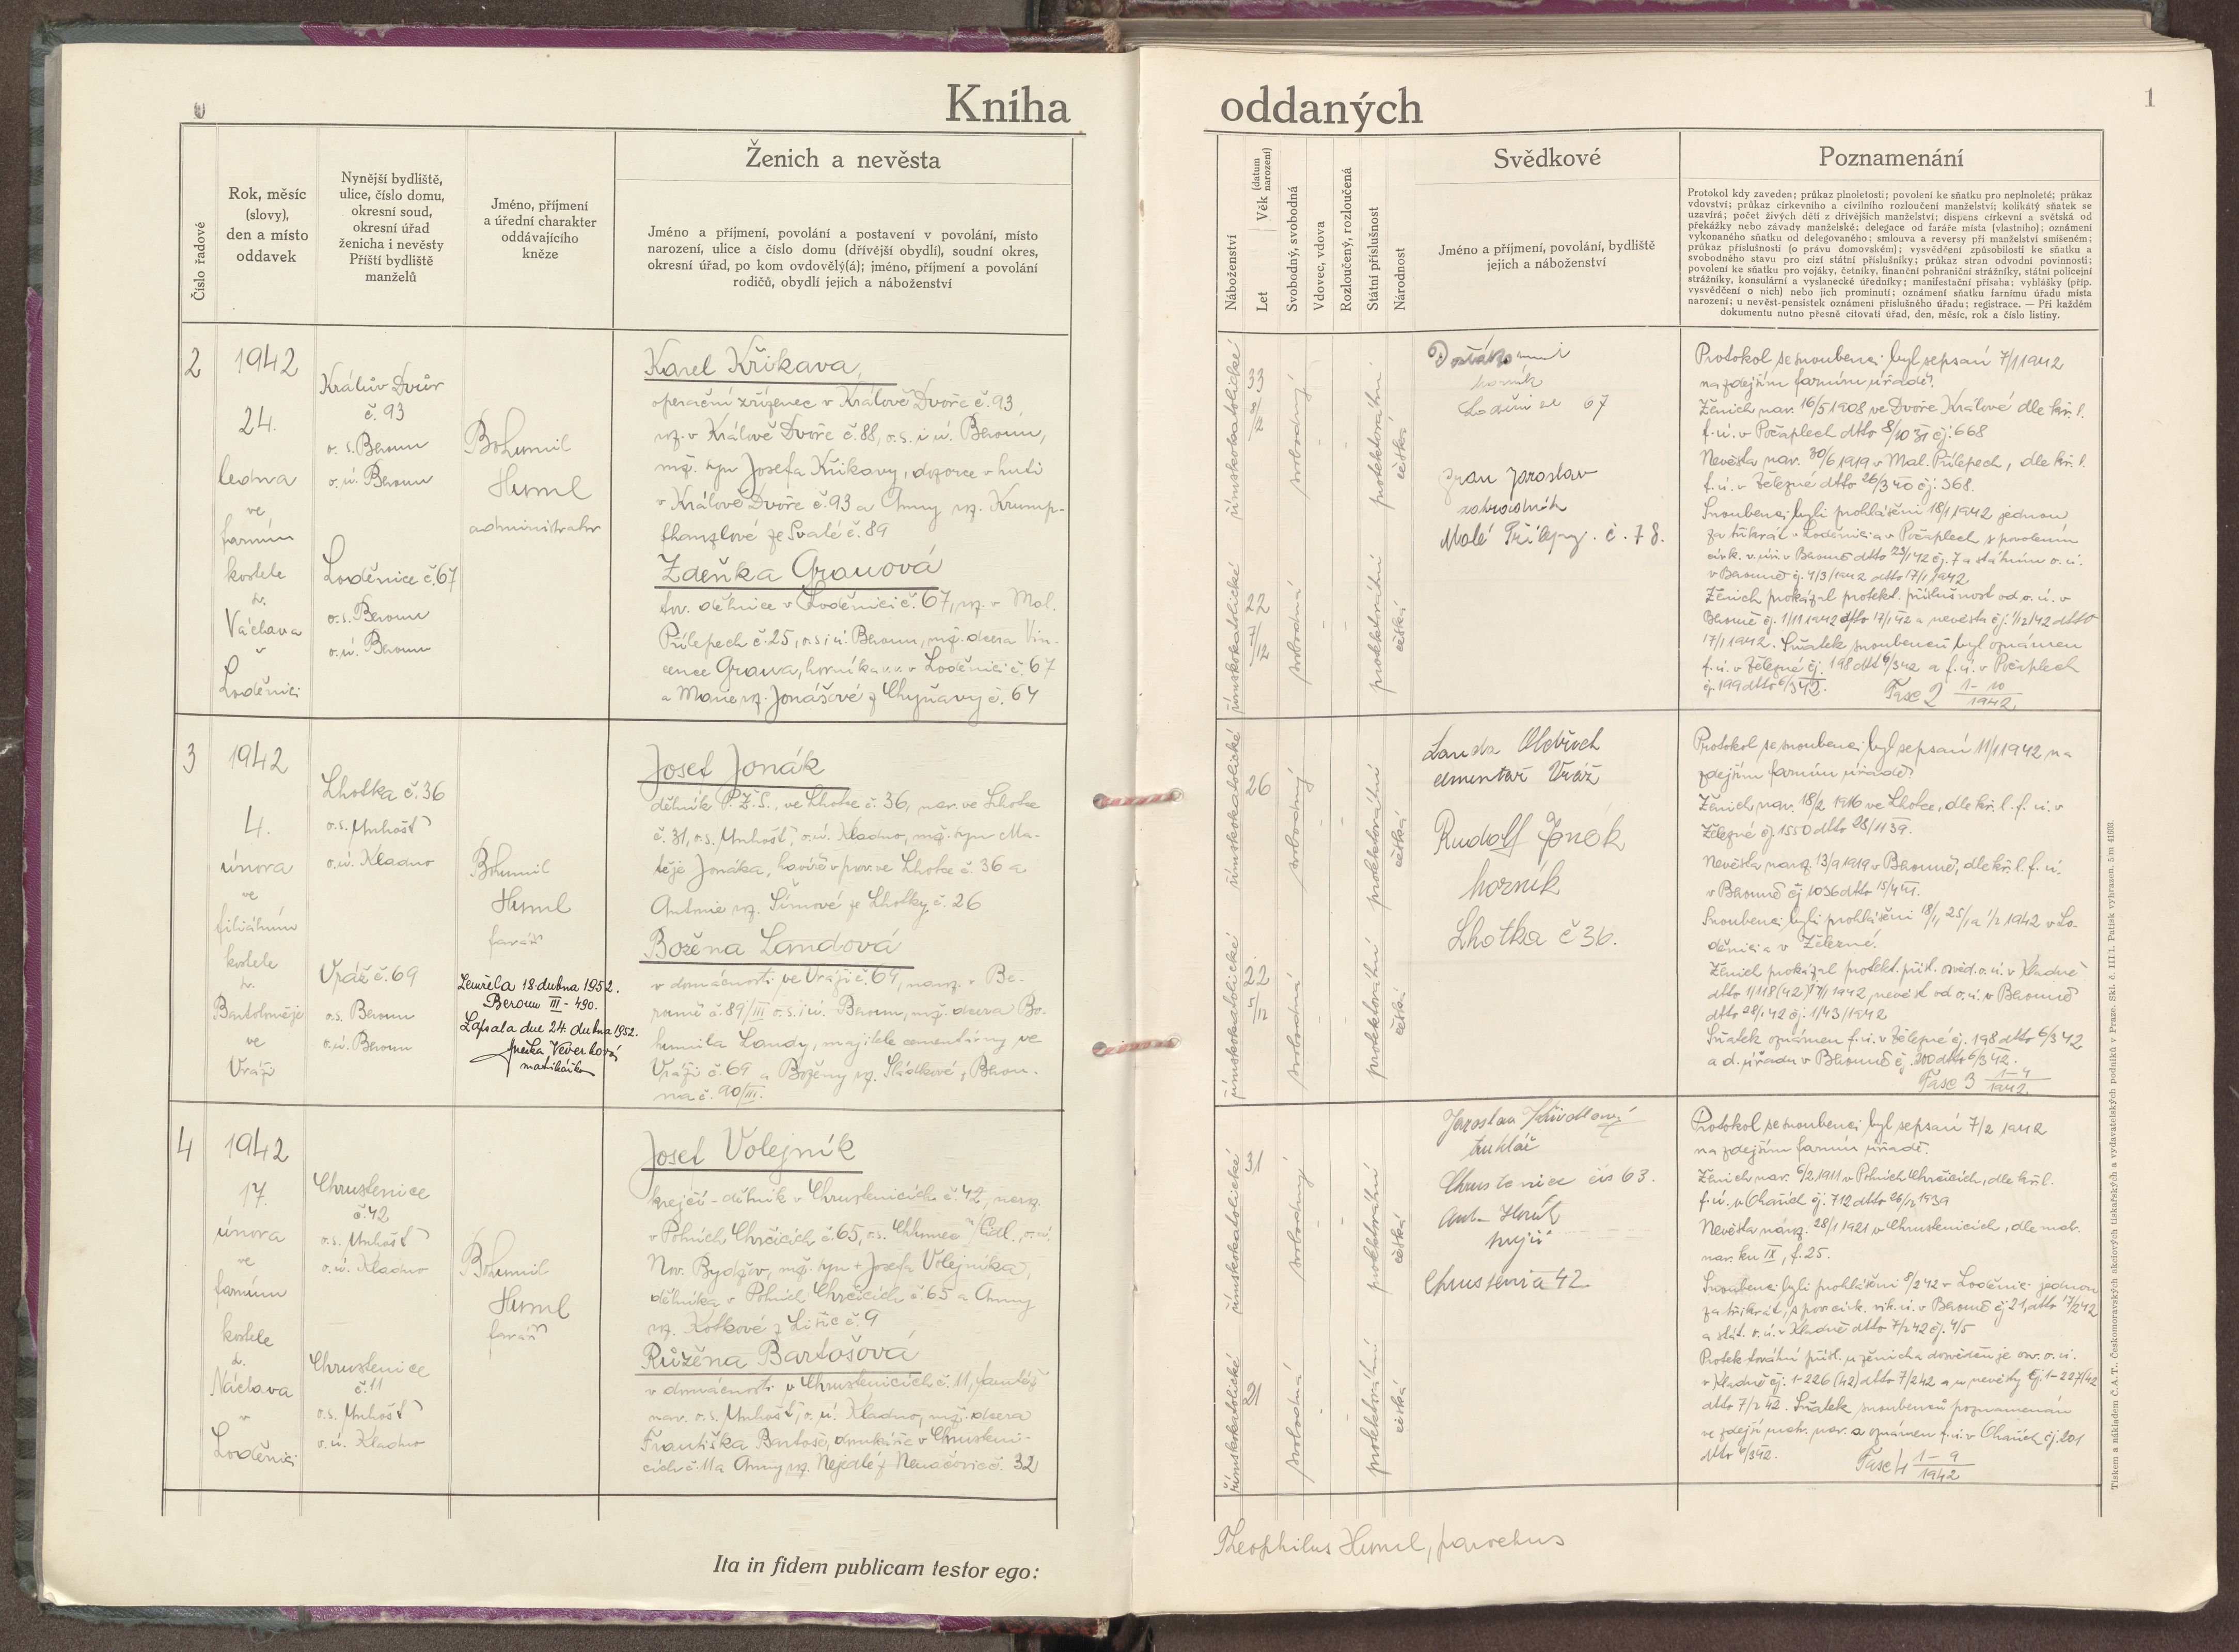 Kniha oddaných
1
Číslo řadové
Rok, měsíc
(slovy),
den a místo
oddavek
Nynější bydliště,
ulice, číslo domu,
okresní soud,
okresní úřad
ženicha i nevěsty
Příští bydliště
manželů
Jméno, příjmení
a úřední charakter
oddávajícího
kněze
Ženich a nevěsta
Jméno a příjmení, povolání a postavení v povolání, místo
narození, ulice a číslo domu (dřívější obydlí), soudní okres,
okresní úřad, po kom ovdovělý(á); jméno, příjmení a povolání
rodičů, obydlí jejich a náboženství
Náboženství
Let
Věk (datum narození)
Svobodný, svobodná
Vdovec, vdova
Rozloučený, rozloučená
Státní příslušnost
Národnost
Svědkové
Jméno a příjmení, povolání, bydliště
jejich a náboženství
Poznamenání
Protokol kdy zaveden; průkaz plnoletosti; povolení ke sňatku pro neplnoleté; průkaz
vdovství; průkaz církevního a civilního rozloučení manželství; kolikátý sňatek se
uzavírá; počet živých dětí z dřívějších manželství; dispens církevní a světská od
překážky nebo závady manželské; delegace od faráře místa (vlastního); oznámení
vykonaného sňatku od delegovaného; smlouva a reversy při manželství smíšeném;
průkaz příslušnosti (o právu domovském); vysvědčení způsobilosti ke sňatku a
svobodného stavu pro cizí státní příslušníky; průkaz stran odvodní povinnosti;
povolení ke sňatku pro vojáky, četníky, finanční pohraniční strážníky, státní policejní
strážníky, konsulární a vyslanecké úředníky; manifestační přísaha; vyhlášky (příp.
vysvědčení o nich) nebo jich prominutí; oznámení sňatku farnímu úřadu místa
narození; u nevěst-pensistek oznámení příslušného úřadu; registrace. — Při každém
dokumentu nutno přesně citovati úřad, den, měsíc, rok a číslo listiny.
2
1942
24.
ledna
ve
farním
kostele
sv.
Václava
v
Loděnici
Králův Dvůr
č. 93
o. s. Beroun
o. ú. Beroun
Loděnice č. 67
o.s. Beroun
o.ú. Beroun
Bohumil
Huml
administrátor
Karel Křikava,
operační zřízenec v Králově Dvoře č. 93,
roz. v Králově Dvoře č. 88, o.s. i ú. Beroun,
mž. syn Josefa Křikavy, dozorce v huti
v Králově Dvoře č. 93 a Anny roz. Krump-
thanzlové ze Svaté č. 89
Zdeňka Grauová
tov. dělnice v Loděnici č. 67, roz. v Mal.
Přílepech č. 25, o.s. i ú. Beroun, mž. dcera Vin-
cence Graua, horníka v.v. v Loděnici č. 67
a Marie roz. Jonášové z Chyňavy č. 64
římskokatolické
33
8/2
svobodný
-
-
protektorátní
česká
římskokatolické
22
7/12
svobodná
-
-
protektorátní
česká
horník
67
Jaroslav
Malé Přílepy č. 78.
Protokol se snoubenci byl sepsán 7/1 1942
na zdejším farním úřadě.
Ženich nar. 16/5 1908 ve Dvoře Králové dle kř. l.
f. ú. v Počaplech dtto 8/10 31 čj. 668
Nevěsta nar. 30/6 1919 v Mal. Přílepech, dle kř. l.
f. ú. v Železné dtto 26/3 40 čj. 368.
Snoubenci byli prohlášeni 18/1 1942 jednou
za třikrát v Loděnici a v Počaplech s povolením
církv. v. úř. v Berouně dtto 23/1 42 čj. 7 a státním o. ú.
v Berouně čj. 4/3/1942 dtto 17/1 1942
Ženich prokázal protekt. příslušnost od o. ú. v
Berouně čj. 1/11 1942 dtto 17/1 42 a nevěsta čj. 1/12/42 dtto
17/1 1942. Sňatek snoubenců byl oznámen
f. ú. v Železné čj. 198 dtt 6/3 42 a f. ú. v Počaplech
čj. 199 dtto 6/3 42.
Fasc 2 1-10/1942
3
1942
4.
února
ve
filiálním
kostele
sv.
Bartoloměje
ve
Vráži
Lhotka č. 36
o.s. Unhošť
o.ú. Kladno
Vráž č. 69
o.s. Beroun
o.ú. Beroun
Bohumil
Huml
farář
Zemřela 18. dubna 1952.
Beroun III - 490.
Zapsala dne 24. dubna 1952.
Veverková
matrikářka
Josef Jonák
dělník P.Ž.S., ve Lhotce č. 36, nar. ve Lhotce
č. 31, o.s. Unhošť, o.ú. Kladno, mž. syn Ma-
těje Jonáka, havíře v pov. ve Lhotce č. 36 a
Antonie roz. Šímové ze Lhotky č. 26
Božena Landová
v domácnosti ve Vráži č. 69, naroz. v Be-
rouně č. 89/III o.s. i ú. Beroun, mž. dcera Bo-
humila Landy, majitele cementárny ve
Vráži č. 69 a Boženy roz. Sládkové z Berou-
na č. 90/III.
římskokatolické
26
svobodný
-
-
protektorátní
česká
římskokatolické
22
5/12
svobodná
-
-
protektorátní
česká
Landa Oldřich
cementář Vráž
Rudolf Jonák
horník
Lhotka č 36.
Protokol se snoubenci byl sepsán 11/1 1942 na
zdejším farním úřadě.
Ženich nar. 18/2 1916 ve Lhotce, dle kř. l. f. ú. v
Železné čj. 1550 dtto 28/11 39.
Nevěsta naroz. 13/9 1919 v Berouně, dle kř. l. f. ú.
v Berouně čj 1036 dtto 15/4 41.
Snoubenci byli prohlášeni 18/1, 25/1 a 1/2 1942 v Lo-
děnici a v Železné.
Ženich prokázal protekt. přísl. osvěd. o. ú. v Kladně
dtto 1/118 (42) 17/1 1942, nevěst od o. ú. v Berouně
dtto 28/1 42 čj. 1/43/1942
Sňatek oznámen f. ú. v Železné čj. 198 dtto 6/3 42
a d. úřadu v Berouně čj. 200 dtto 6/3 42.
Fasc 3 1-4/1942
4
1942
17.
února
ve
farním
kostele
sv.
Václava
v
Loděnici
Chrustenice
č. 42
o.s. Unhošť
o.ú. Kladno
Chrustenice
č. 11
o.s. Unhošť
o.ú. Kladno
Bohumil
Huml
farář
Josef Volejník
krejčí - dělník v Chrustenicích č. 42, naroz.
v Polních Chrčicích č. 65, o.s. Chlumec n/Cidl., o. ú.
Nov. Bydžov, mž. syn + Josefa Volejníka,
dělníka v Polních Chrčicích č. 65 a Anny
roz. Kotkové z Lišic č. 9
Růžena Bartošová
v domácnosti v Chrustenicích č. 11, tamtéž
nar. o.s. Unhošť, o.ú. Kladno, mž. dcera
Františka Bartoše, domkáře v Chrusteni-
cích č. 11 a Anny roz. Nejedlé z Nenačovic č. 32
římskokatolické
31
svobodný
-
-
protektorátní
česká
římskokatolické
21
svobodná
-
-
protektorátní
česká
Jaroslav
truhlář
Chrustenice čís 63.
Ant.
krejčí
42
Protokol se snoubenci byl sepsán 7/2 1942
na zdejším farním úřadě.
Ženich nar. 6/2 1911 v Polních Chrčicích, dle kř. l.
f. ú. v Ohařích čj. 712 dtto 26/12 1939
Nevěsta naroz. 28/1 1921 v Chrustenicích, dle matr.
nar. kn IX, f. 25.
Snoubenci byli prohlášeni 8/2 42 v Loděnici jednou
za třikrát, s pov. círk. vik. ú. v Berouně čj 21, dtto 17/2 42
a stát. o. ú. v Kladně dtto 7/2 42 čj. 4/5
Protektorátní přísl. u ženicha dosvědčuje osv. o. ú.
v Kladně čj. 1-226 (42) dtto 7/2 42 a u nevěsty čj. 1-227/42
dtto 7/2 42. Sňatek snoubenců poznamenán
ve zdejší matr. nar. a oznámen f. ú. v Ohařích čj. 201
dtto 6/3 42.
Fasc 4 1-9/1942
Ita in fidem publicam testor ego:
Theophilus Huml, parochus
Tiskem a nákladem Č.A.T., Českomoravských akciových tiskařských a vydavatelských podniků v Praze. Skl. č. III.11. Patisk vyhrazen. 5/m 41693.